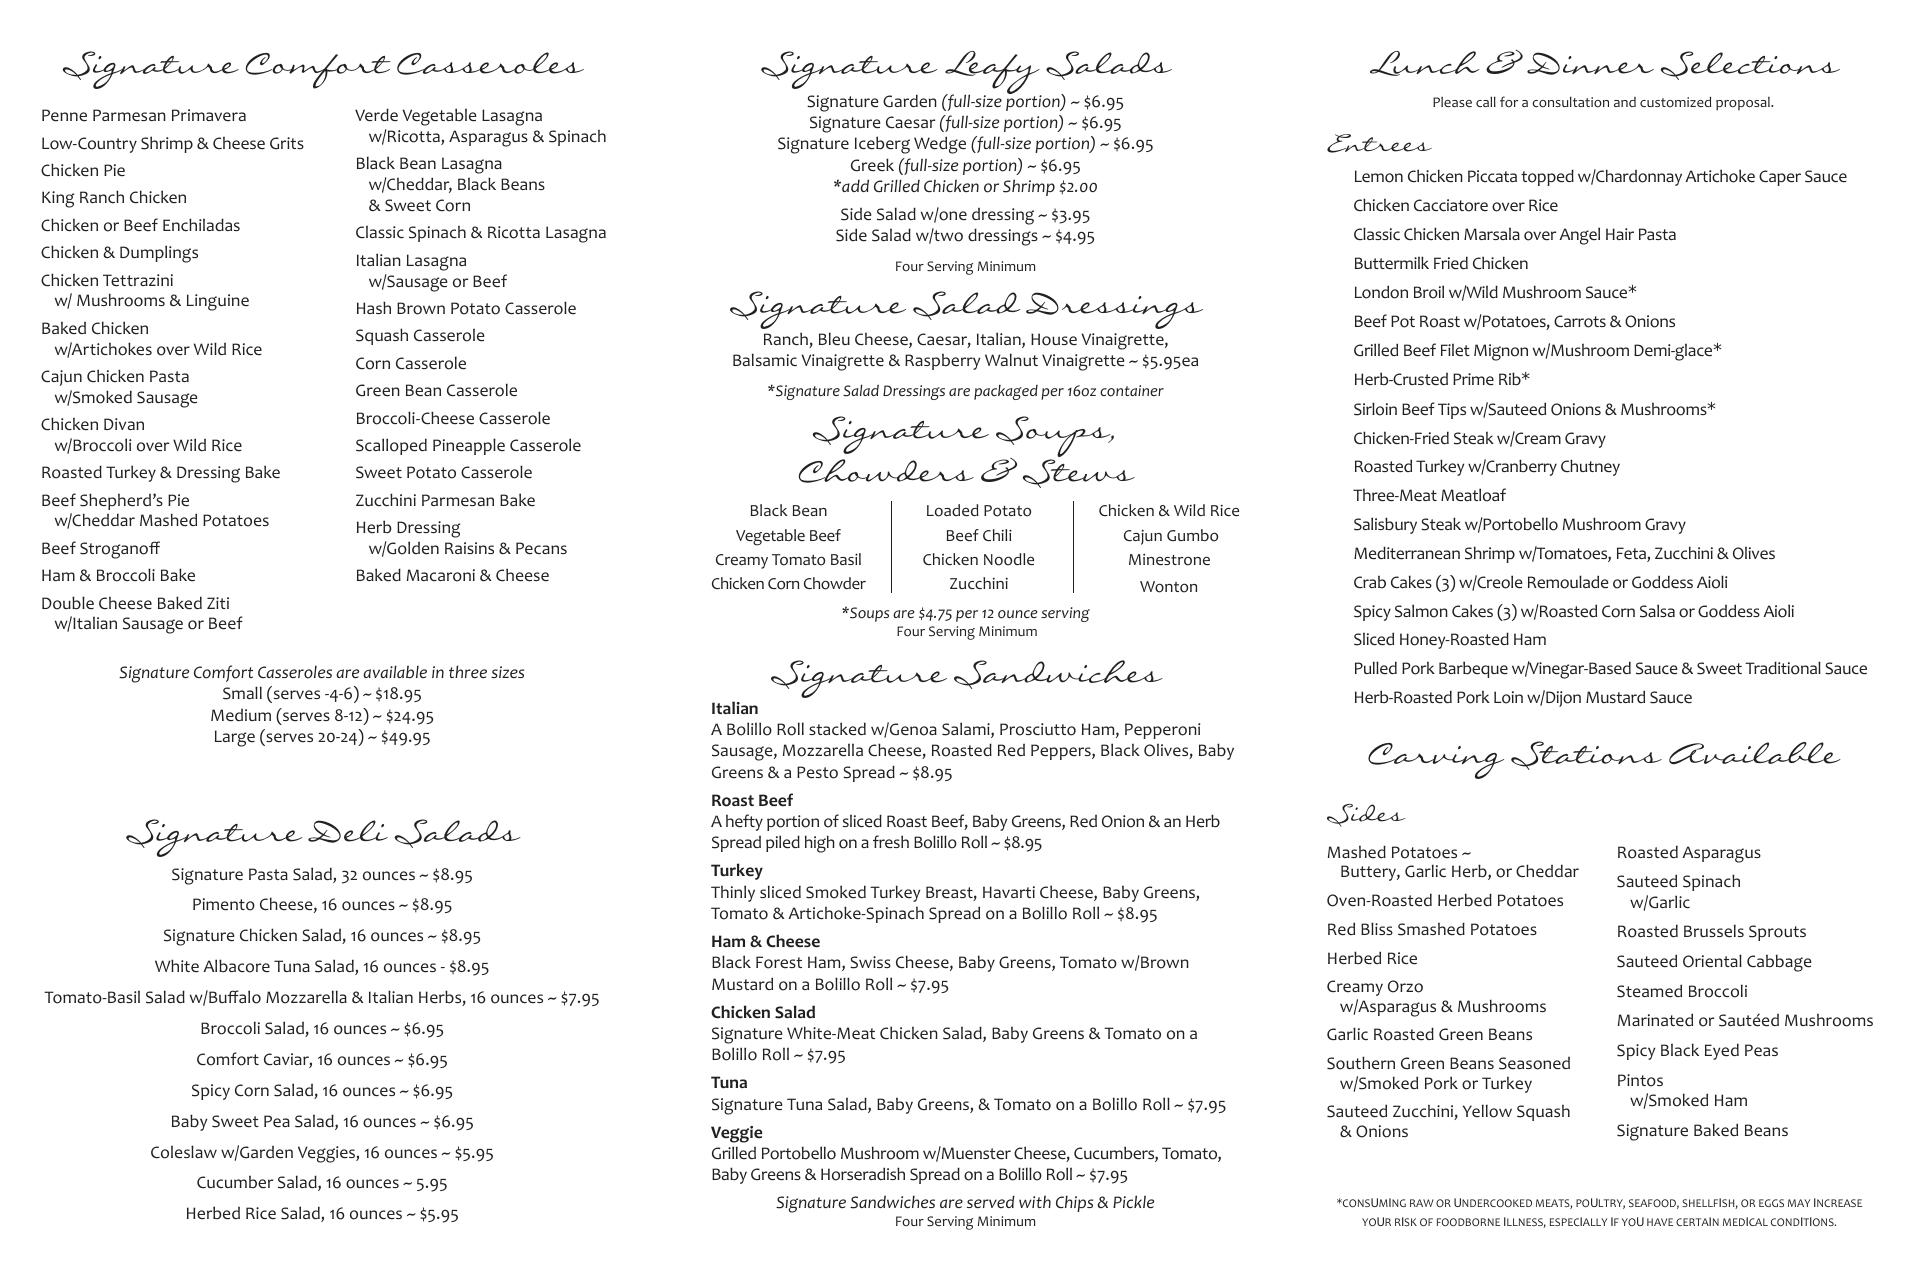 Signature Comfort Casseroles
Penne Parmesan Primavera
Low-Country Shrimp & Cheese Grits
Chicken Pie
King Ranch Chicken
Chicken or Beef Enchiladas
Chicken & Dumplings
Chicken Tettrazini
w/ Mushrooms & Linguine
Baked Chicken
w/Artichokes over Wild Rice
Cajun Chicken Pasta
w/Smoked Sausage
Chicken Divan
w/Broccoli over Wild Rice
Roasted Turkey & Dressing Bake
Beef Shepherd’s Pie
w/Cheddar Mashed Potatoes
Beef Stroganoff
Ham & Broccoli Bake
Double Cheese Baked Ziti
w/Italian Sausage or Beef
Verde Vegetable Lasagna
w/Ricotta, Asparagus & Spinach
Black Bean Lasagna
w/Cheddar, Black Beans
& Sweet Corn
Classic Spinach & Ricotta Lasagna
Italian Lasagna
w/Sausage or Beef
Hash Brown Potato Casserole
Squash Casserole
Corn Casserole
Green Bean Casserole
Broccoli-Cheese Casserole
Scalloped Pineapple Casserole
Sweet Potato Casserole
Zucchini Parmesan Bake
Herb Dressing
w/Golden Raisins & Pecans
Baked Macaroni & Cheese
Signature Comfort Casseroles are available in three sizes
Small (serves -4-6) ~ $18.95
Medium (serves 8-12) ~ $24.95
Large (serves 20-24) ~ $49.95
Signature Deli Salads
Signature Pasta Salad, 32 ounces ~ $8.95
Pimento Cheese, 16 ounces ~ $8.95
Signature Chicken Salad, 16 ounces ~ $8.95
White Albacore Tuna Salad, 16 ounces - $8.95
Tomato-Basil Salad w/Buffalo Mozzarella & Italian Herbs, 16 ounces ~ $7.95
Broccoli Salad, 16 ounces ~ $6.95
Comfort Caviar, 16 ounces ~ $6.95
Spicy Corn Salad, 16 ounces ~ $6.95
Baby Sweet Pea Salad, 16 ounces ~ $6.95
Coleslaw w/Garden Veggies, 16 ounces ~ $5.95
Cucumber Salad, 16 ounces ~ 5.95
Herbed Rice Salad, 16 ounces ~ $5.95
Signature Leafy Salads
Signature Garden (full-size portion) ~ $6.95
Signature Caesar (full-size portion) ~ $6.95
Signature Iceberg Wedge (full-size portion) ~ $6.95
Greek (full-size portion) ~ $6.95
*add Grilled Chicken or Shrimp $2.00
Side Salad w/one dressing ~ $3.95
Side Salad w/two dressings ~ $4.95
Four Serving Minimum
Signature Salad Dressings
Ranch, Bleu Cheese, Caesar, Italian, House Vinaigrette,
Balsamic Vinaigrette & Raspberry Walnut Vinaigrette ~ $5.95ea
*Signature Salad Dressings are packaged per 16oz container
Signature Soups,
Chowders & Stews
Black Bean
Vegetable Beef
Creamy Tomato Basil
Chicken Corn Chowder
Loaded Potato
Beef Chili
Chicken Noodle
Zucchini
Chicken & Wild Rice
Cajun Gumbo
Minestrone
Wonton
*Soups are $4.75 per 12 ounce serving
Four Serving Minimum
Signature Sandwiches
Italian
A Bolillo Roll stacked w/Genoa Salami, Prosciutto Ham, Pepperoni
Sausage, Mozzarella Cheese, Roasted Red Peppers, Black Olives, Baby
Greens & a Pesto Spread ~ $8.95
Roast Beef
A hefty portion of sliced Roast Beef, Baby Greens, Red Onion & an Herb
Spread piled high on a fresh Bolillo Roll ~ $8.95
Turkey
Thinly sliced Smoked Turkey Breast, Havarti Cheese, Baby Greens,
Tomato & Artichoke-Spinach Spread on a Bolillo Roll ~ $8.95
Ham & Cheese
Black Forest Ham, Swiss Cheese, Baby Greens, Tomato w/Brown
Mustard on a Bolillo Roll ~ $7.95
Chicken Salad
Signature White-Meat Chicken Salad, Baby Greens & Tomato on a
Bolillo Roll ~ $7.95
Tuna
Signature Tuna Salad, Baby Greens, & Tomato on a Bolillo Roll ~ $7.95
Veggie
Grilled Portobello Mushroom w/Muenster Cheese, Cucumbers, Tomato,
Baby Greens & Horseradish Spread on a Bolillo Roll ~ $7.95
Signature Sandwiches are served with Chips & Pickle
Four Serving Minimum
Lunch & Dinner Selections
Please call for a consultation and customized proposal.
Entrees
Lemon Chicken Piccata topped w/Chardonnay Artichoke Caper Sauce
Chicken Cacciatore over Rice
Classic Chicken Marsala over Angel Hair Pasta
Buttermilk Fried Chicken
London Broil w/Wild Mushroom Sauce*
Beef Pot Roast w/Potatoes, Carrots & Onions
Grilled Beef Filet Mignon w/Mushroom Demi-glace*
Herb-Crusted Prime Rib*
Sirloin Beef Tips w/Sauteed Onions & Mushrooms*
Chicken-Fried Steak w/Cream Gravy
Roasted Turkey w/Cranberry Chutney
Three-Meat Meatloaf
Salisbury Steak w/Portobello Mushroom Gravy
Mediterranean Shrimp w/Tomatoes, Feta, Zucchini & Olives
Crab Cakes (3) w/Creole Remoulade or Goddess Aioli
Spicy Salmon Cakes (3) w/Roasted Corn Salsa or Goddess Aioli
Sliced Honey-Roasted Ham
Pulled Pork Barbeque w/Vinegar-Based Sauce & Sweet Traditional Sauce
Herb-Roasted Pork Loin w/Dijon Mustard Sauce
Carving Stations Available
Sides
Mashed Potatoes ~
Buttery, Garlic Herb, or Cheddar
Oven-Roasted Herbed Potatoes
Red Bliss Smashed Potatoes
Herbed Rice
Creamy Orzo
w/Asparagus & Mushrooms
Garlic Roasted Green Beans
Southern Green Beans Seasoned
w/Smoked Pork or Turkey
Sauteed Zucchini, Yellow Squash
& Onions
Roasted Asparagus
Sauteed Spinach
w/Garlic
Roasted Brussels Sprouts
Sauteed Oriental Cabbage
Steamed Broccoli
Marinated or Sautéed Mushrooms
Spicy Black Eyed Peas
Pintos
w/Smoked Ham
Signature Baked Beans
*CONSUMING RAW OR UNDERCOOKED MEATS, POULTRY, SEAFOOD, SHELLFISH, OR EGGS MAY INCREASE
YOUR RISK OF FOODBORNE ILLNESS, ESPECIALLY IF YOU HAVE CERTAIN MEDICAL CONDITIONS.